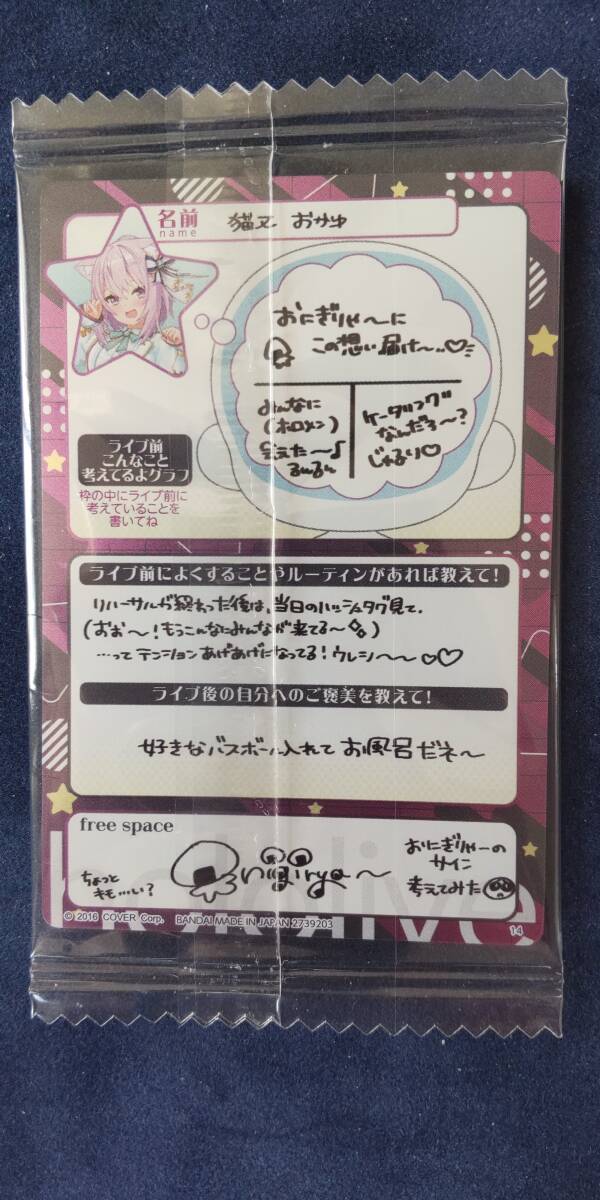 名前
name
猫又 おかゆ
おにぎりゃ〜に
この想い届け〜..♡
みんなに
(ホロメン)
会えた〜♪
るんるん
ケータリング
なんだろ〜?
じゅるり♡
ライブ前
こんなこと
考えてるよグラフ
枠の中にライブ前に
考えていることを
書いてね
ライブ前によくすることやルーティンがあれば教えて!
リハーサルが終わった後は、当日のハッシュタグ見て、
(おぉ〜!もうこんなにみんなが来てる〜)
…って テンションあげあげになってる! ウレシ〜〜♡♡
ライブ後の自分へのご褒美を教えて!
好きなバスボール入れて お風呂だネ〜
free space
おにぎりゃーの
サイン
考えてみた
ちょっと
キモ…い?
hololive
© 2016 COVER Corp. BANDAI MADE IN JAPAN 2739203
14